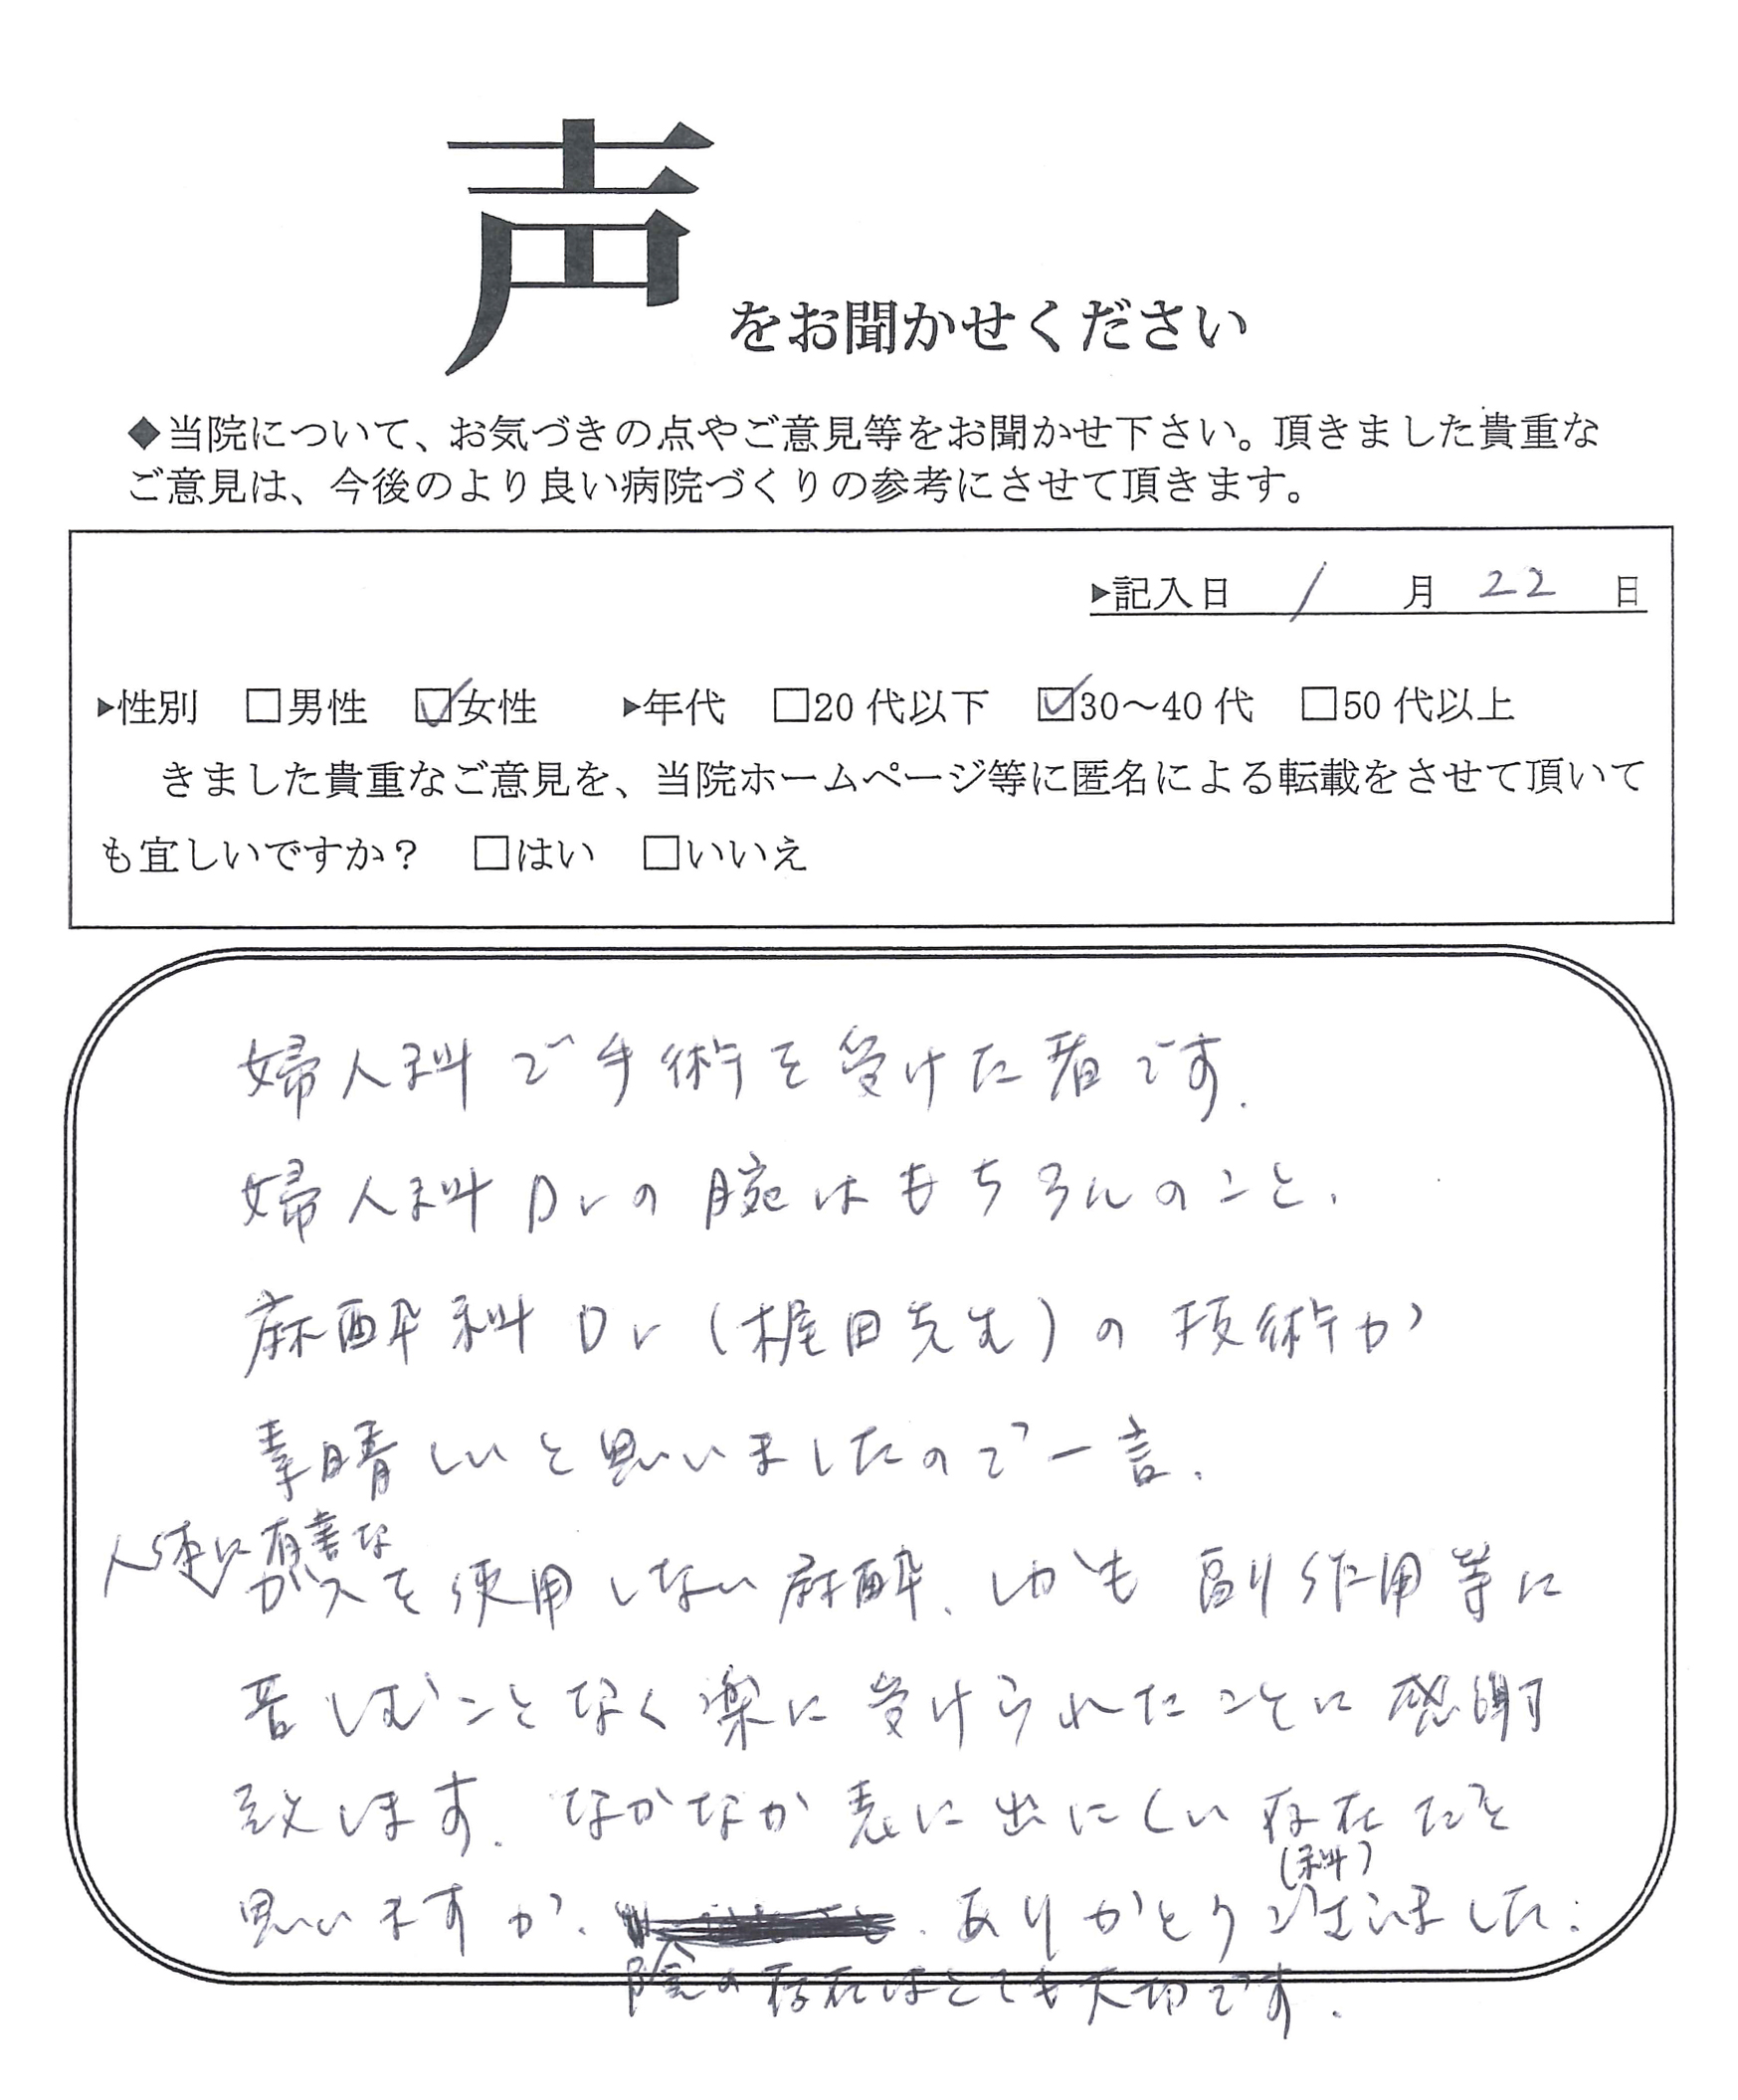 声をお聞かせください
◆当院について、お気づきの点やご意見等をお聞かせ下さい。頂きました貴重な
ご意見は、今後のより良い病院づくりの参考にさせて頂きます。
▶記入日 1 月 22 日
▶性別 □男性 ☑女性 ▶年代 □20代以下 ☑30～40代 □50代以上
きました貴重なご意見を、当院ホームページ等に匿名による転載をさせて頂いて
も宜しいですか？ □はい □いいえ
婦人科で手術を受けた者です.
婦人科Drの腕はもちろんのこと、
麻酔科Dr（梶田先生）の技術が
素晴しいと思いましたので一言、
人体に有害な
ガスを使用しない麻酔、しかも副作用等に
苦しむことなく楽に受けられたことに感謝
致します. なかなか表に出にくい存在だと
(科)
思いますが、. ありがとうございました.
陰の存在はとても大切です.